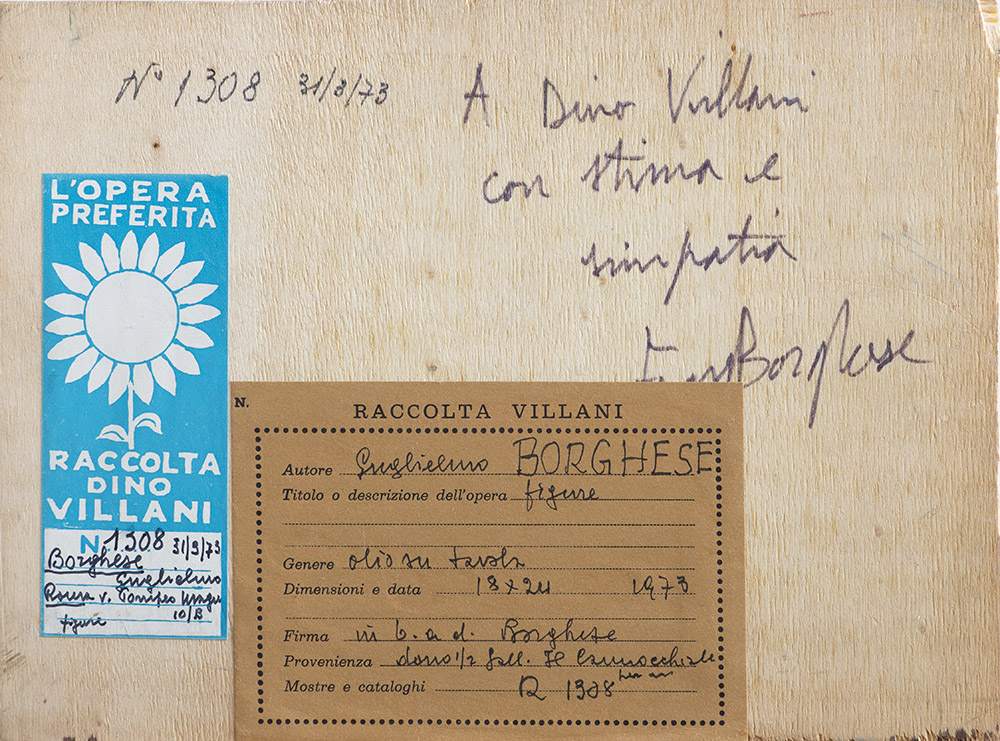 N° 1308 31/8/73
A Dino Villani
con stima e
simpatia
Borghese
L'OPERA
PREFERITA
RACCOLTA
DINO
VILLANI
N 1308 31/8/73
Borghese
Guglielmo
Roma v.
10/B
figure
N.
RACCOLTA VILLANI
Autore Guglielmo BORGHESE
Titolo o descrizione dell'opera figure
Genere olio su tavola
Dimensioni e data 18x24 1973
Firma in b. a d. Borghese
Provenienza dono 1/2 Gall. Il Cannocchiale
Mostre e cataloghi R 1308